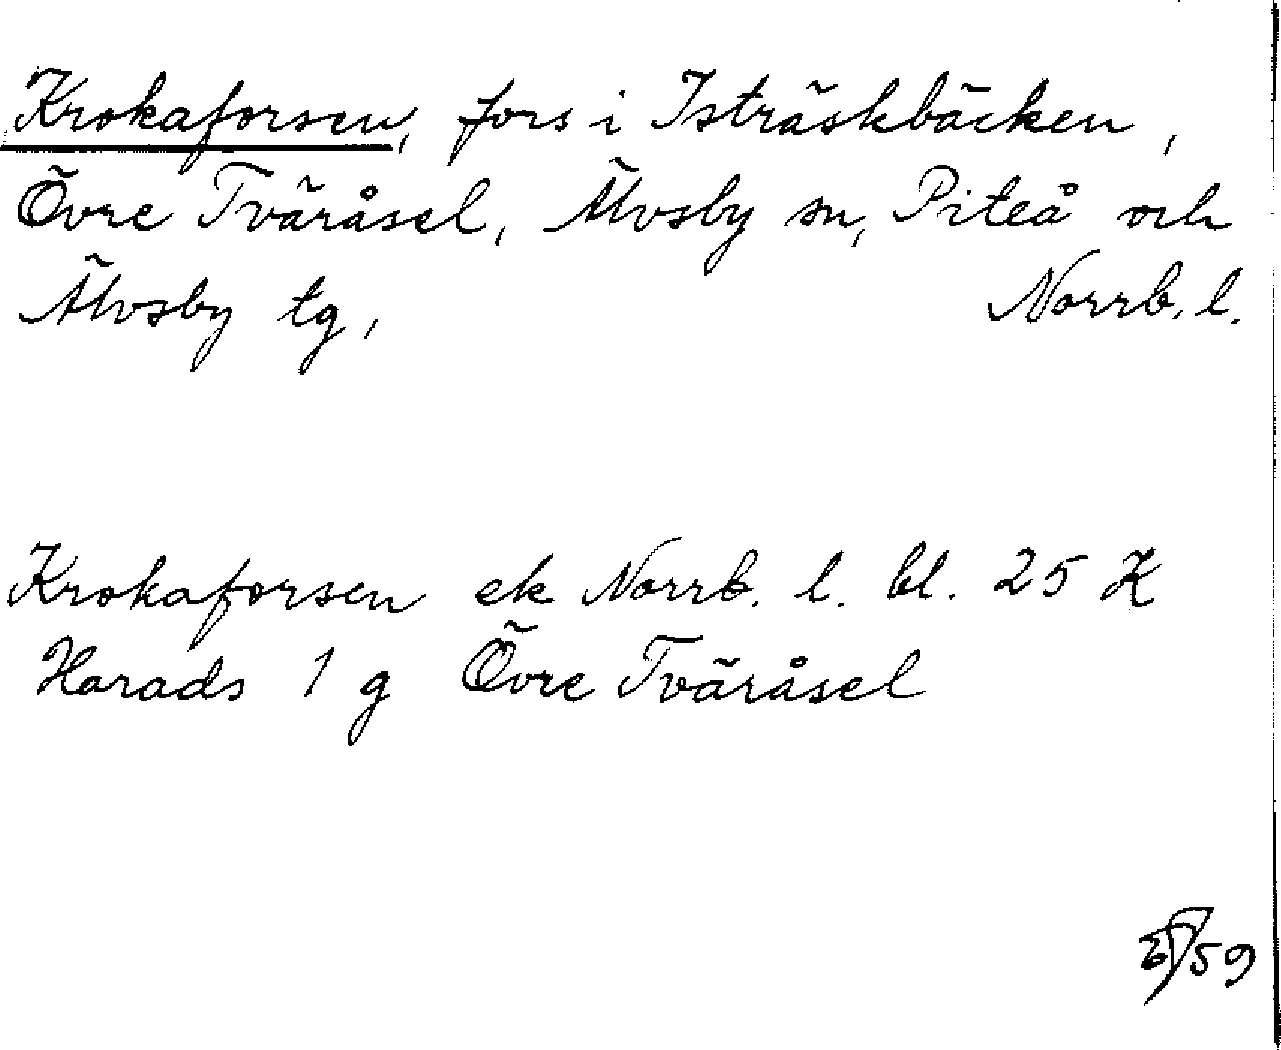 Krokaforsen, fors i Isträskbäcken,
Övre Tväråsel, Älvsby sn, Piteå och
Älvsby tg, Norrb. l.
Krokaforsen ek Norrb. l. bl. 25 K
Harads 1 g Övre Tväråsel
59